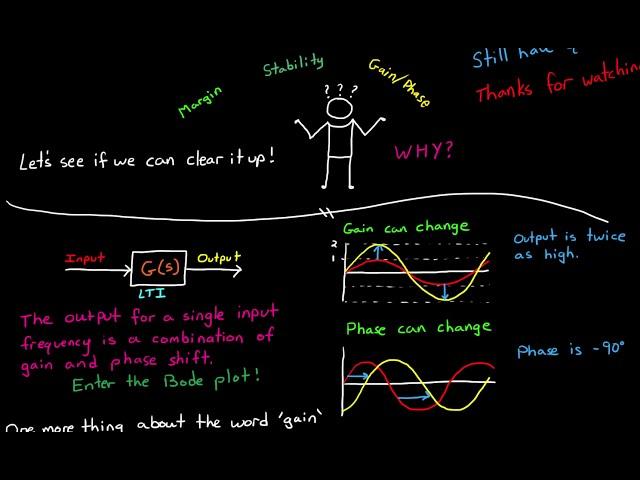 Still hau
Stability
Gain/Phase
Thanks for watching
? ? ?
Margin
WHY?
Let's see if we can clear it up!
Gain can change
2
1
Output is twice
as high.
Input
G(s)
Output
LTI
The output for a single input
frequency is a combination of
gain and phase shift.
Enter the Bode plot!
Phase can change
Phase is -90°
One more thing about the word 'gain'